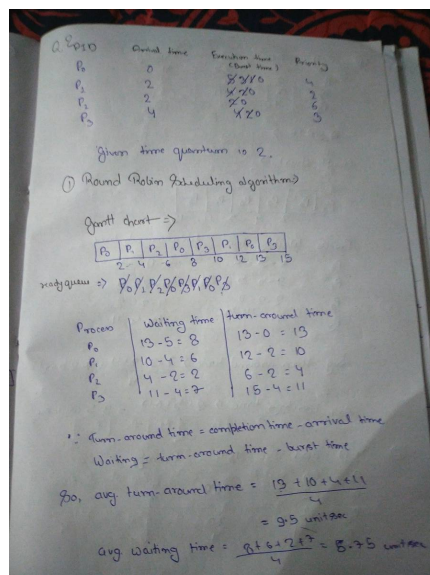 PID Arrival time Execution time Priority
(Burst time)
P0 0 5 3 1 0 4
P1 2 4 2 0 2
P2 2 2 0 6
P3 4 4 2 0 3
Given time quantum is 2.
① Round Robin Scheduling algorithm⇒
Gantt chart ⇒
P0 P1 P2 P0 P3 P1 P0 P3
2 4 6 8 10 12 13 15
ready queue ⇒ P0 P1 P2 P0 P3 P1 P0 P3
Process Waiting time turn-around time
P0 13-5 = 8 13-0 = 13
P1 10-4 = 6 12-2 = 10
P2 4-2 = 2 6-2 = 4
P3 11-4 = 7 15-4 = 11
∵ Turn-around time = completion time - arrival time
Waiting = turn-around time - burst time
So, avg turn-around time = 13+10+4+11
4
= 9.5 unit sec
avg waiting time = 8+6+2+7 = 5.75 unit sec
4